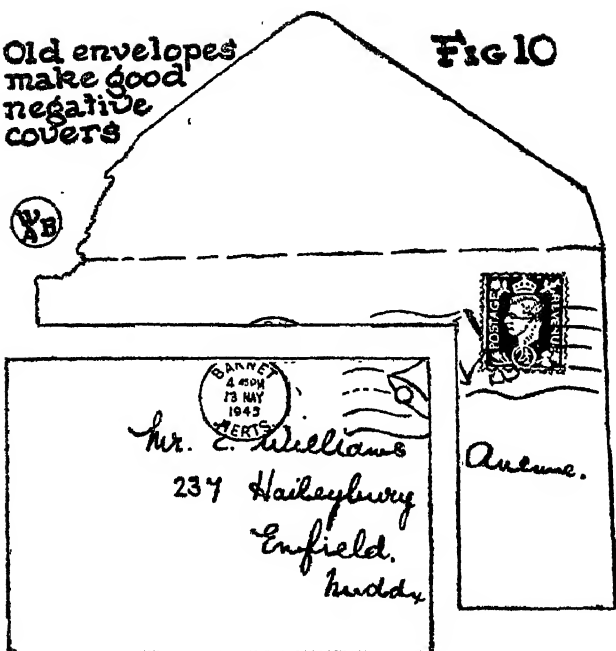 Old envelopes
make good
negative
covers
FIG 10
WAB
POSTAGE
REVENUE
2½
BARNET
4 45PM
13 MAY
1943
HERTS
Mr. C. Williams
237 Haileybury
Avenue.
Enfield.
Middx